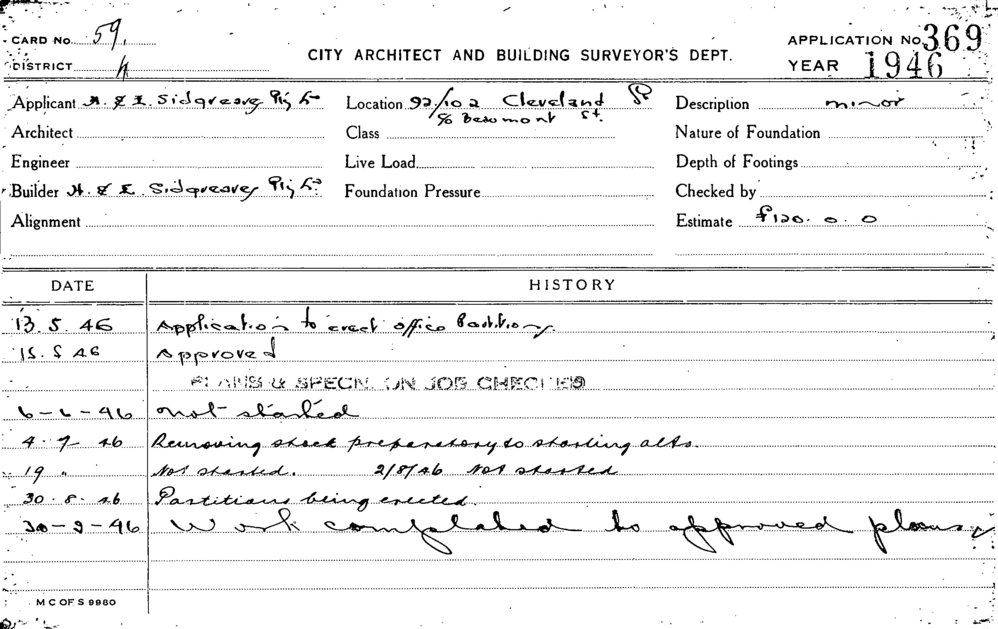 CARD No. 59.
DISTRICT 4
CITY ARCHITECT AND BUILDING SURVEYOR'S DEPT.
APPLICATION No. 369
YEAR 1946
Applicant H. & E. Sidgreaves Pty Ltd
Location 92/102 Cleveland St
c/o Beaumont St.
Description minor
Architect
Class
Nature of Foundation
Engineer
Live Load
Depth of Footings
Builder H. & E. Sidgreaves Pty Ltd.
Foundation Pressure
Checked by
Alignment
Estimate £120. 0. 0
DATE HISTORY
13. 5. 46 Application to erect office Partitions.
15. 5 46 Approved
PLANS & SPECN. ON JOB CHECKED
6-6-46 not started
4. 7. 46 Removing stock preparatory to starting alts.
19 " Not started. 2/8/46 Not started
30. 8. 46 Partitions being erected.
20-9-46 Work completed to approved plans
M C OF S 9980